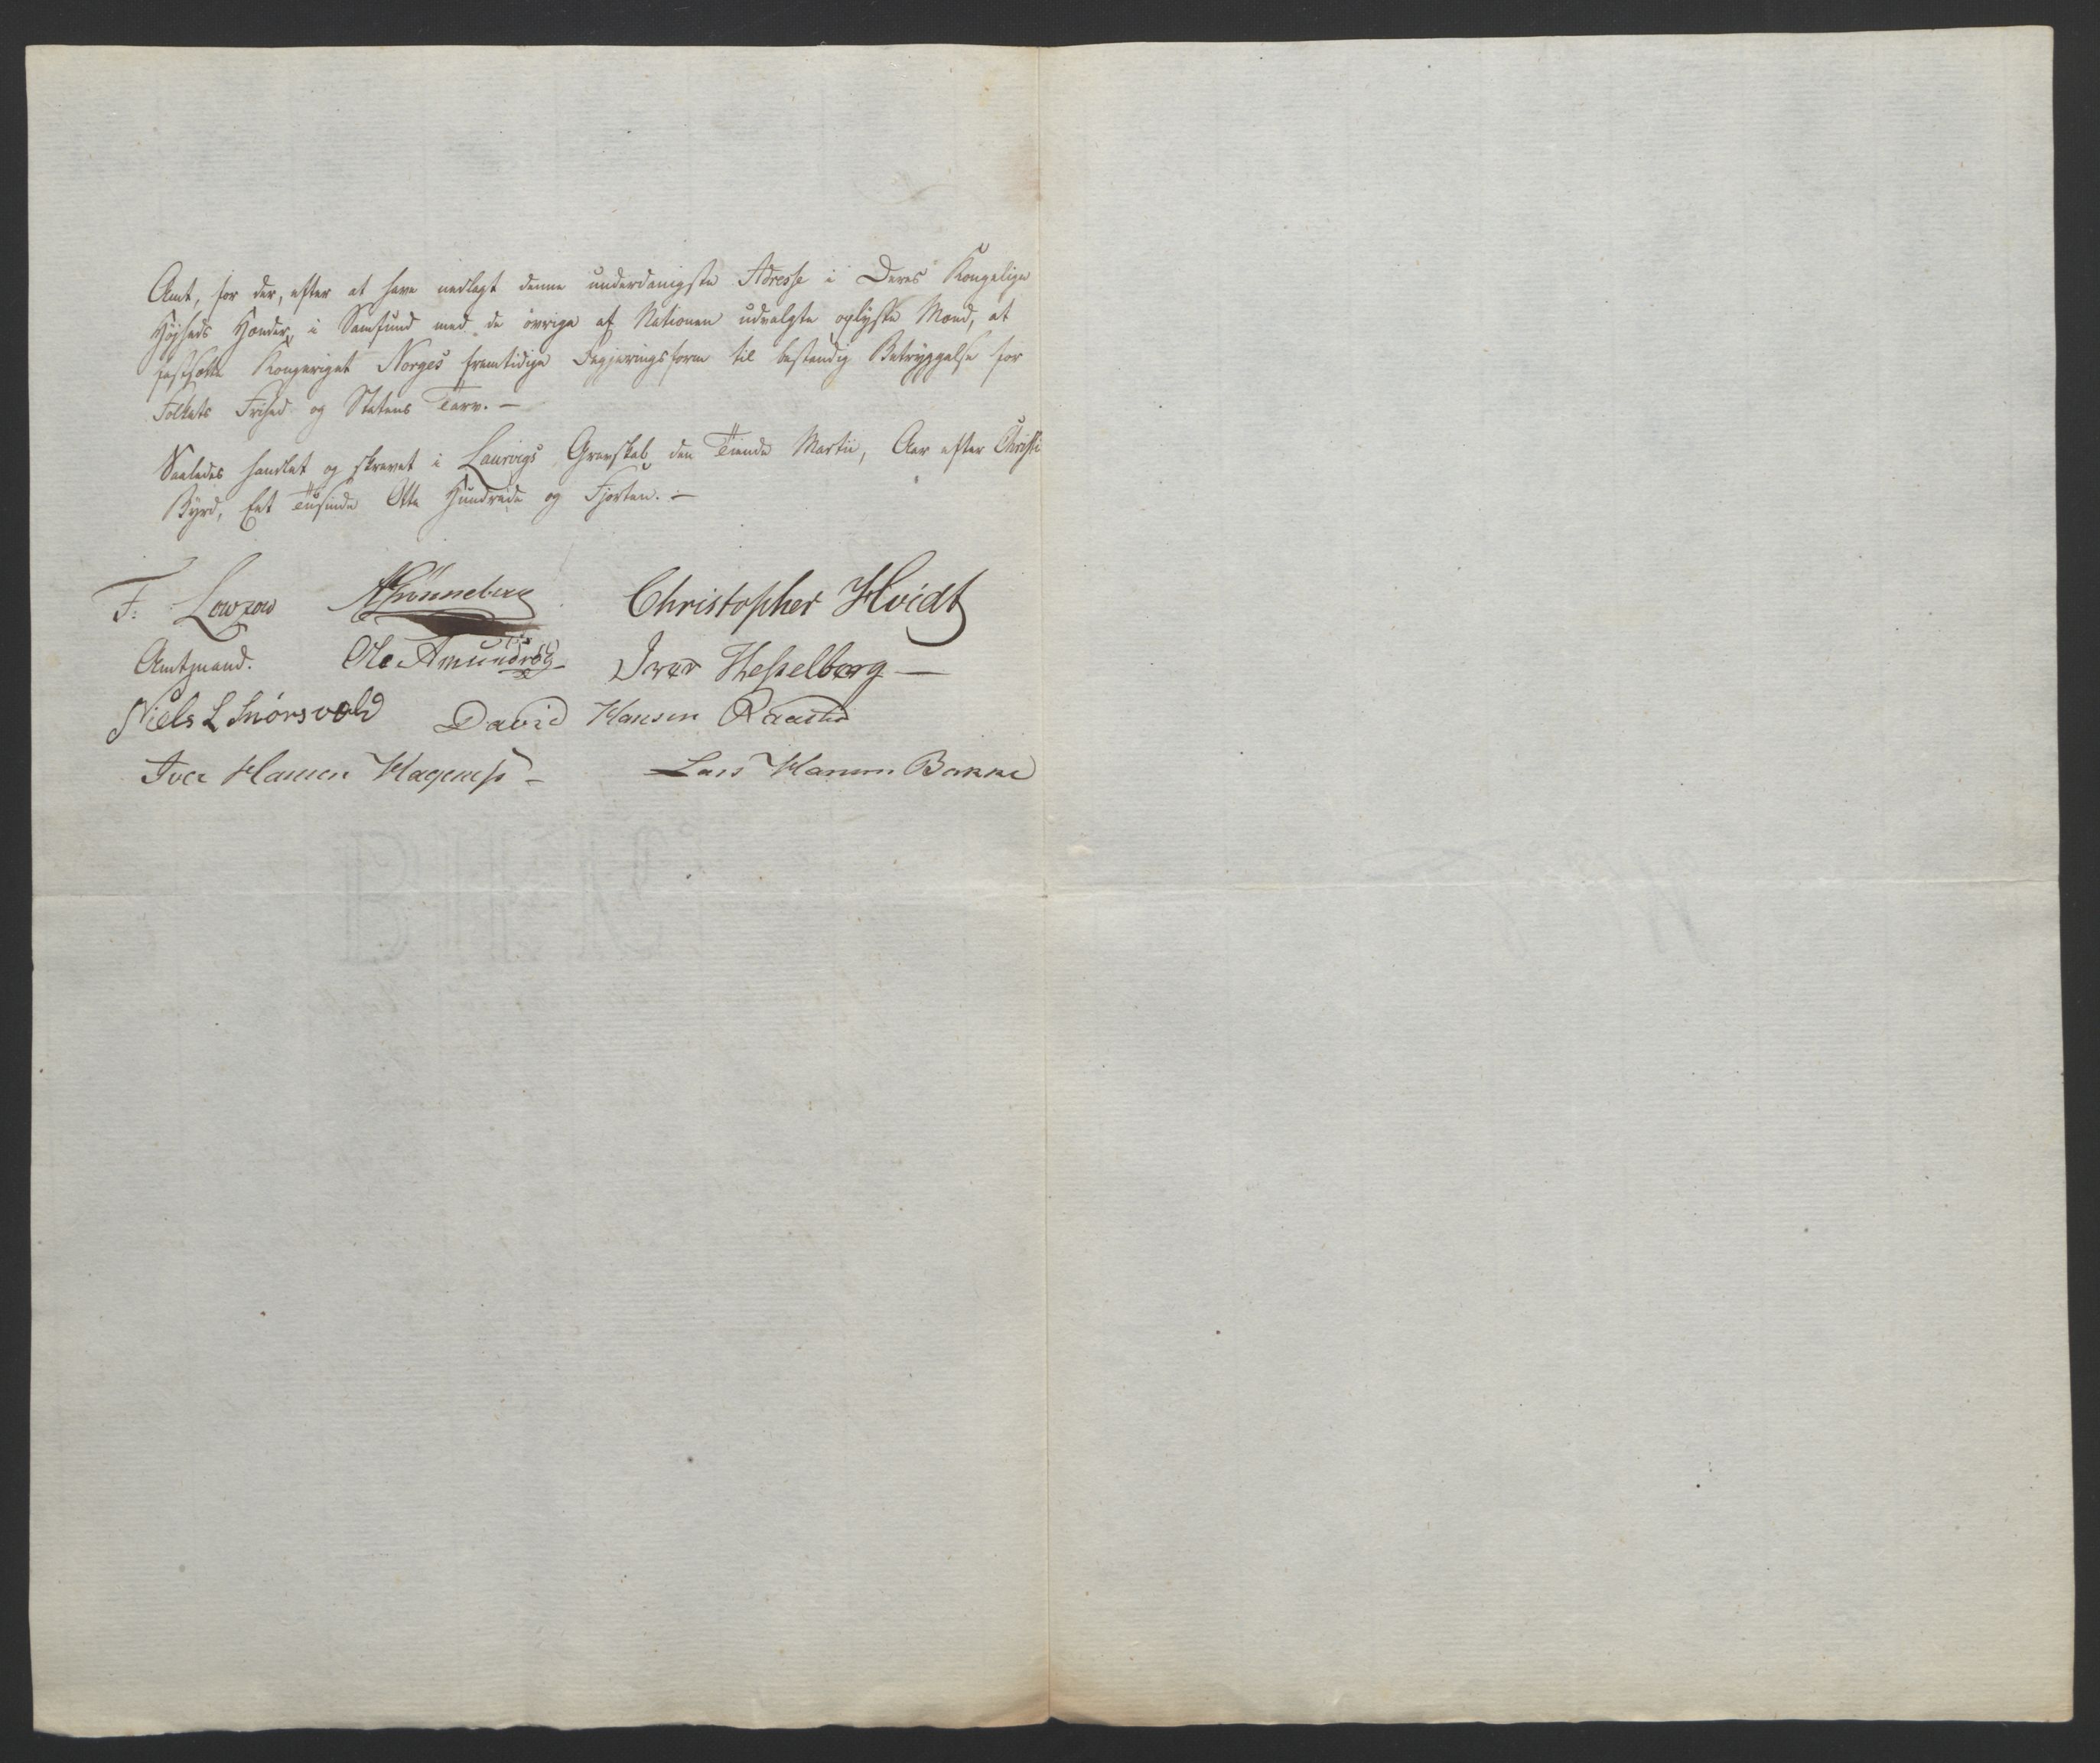 Amt, for der, efter at have nedlagt denne underdanigste Adresse i Deres Kongelige
Høyheds Hænder, i Samfund med de øvrige af Nationen udvalgte oplyste Mænd, at
fastsætte Kongeriget Norges fremtidige Regjeringsform til bestandig Betryggelse for
Folkets Frihed og Statens Tarv. —
Saaledes handlet og skrevet i Laurvigs Grevskab den Tiende Martii, Aar efter Christi
Byrd, Eet Tusinde Otte Hundrede og Fjorten. —
F. Lowzow Christopher Hvidt
Amtmand. Ole Amundrød Iver Hesselberg —
Niels L Snørsvold David Hansen Raastad
Iver Hansen Hagenæss — Lars Hansen Bakke